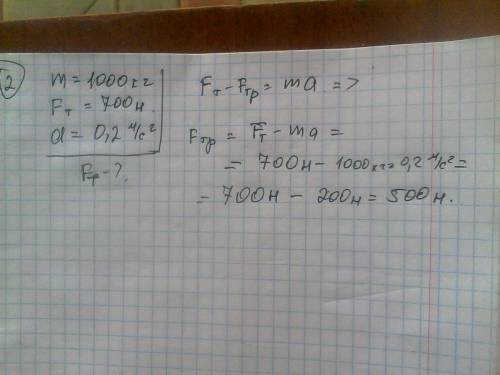 2
m = 1000кг
Fт = 700н.
a = 0,2 м/с²
Fтр - ?.
Fт - Fтр = ma =>
Fтр = Fт - ma =
= 700н - 1000кг * 0,2 м/с² =
= 700н - 200н = 500н.